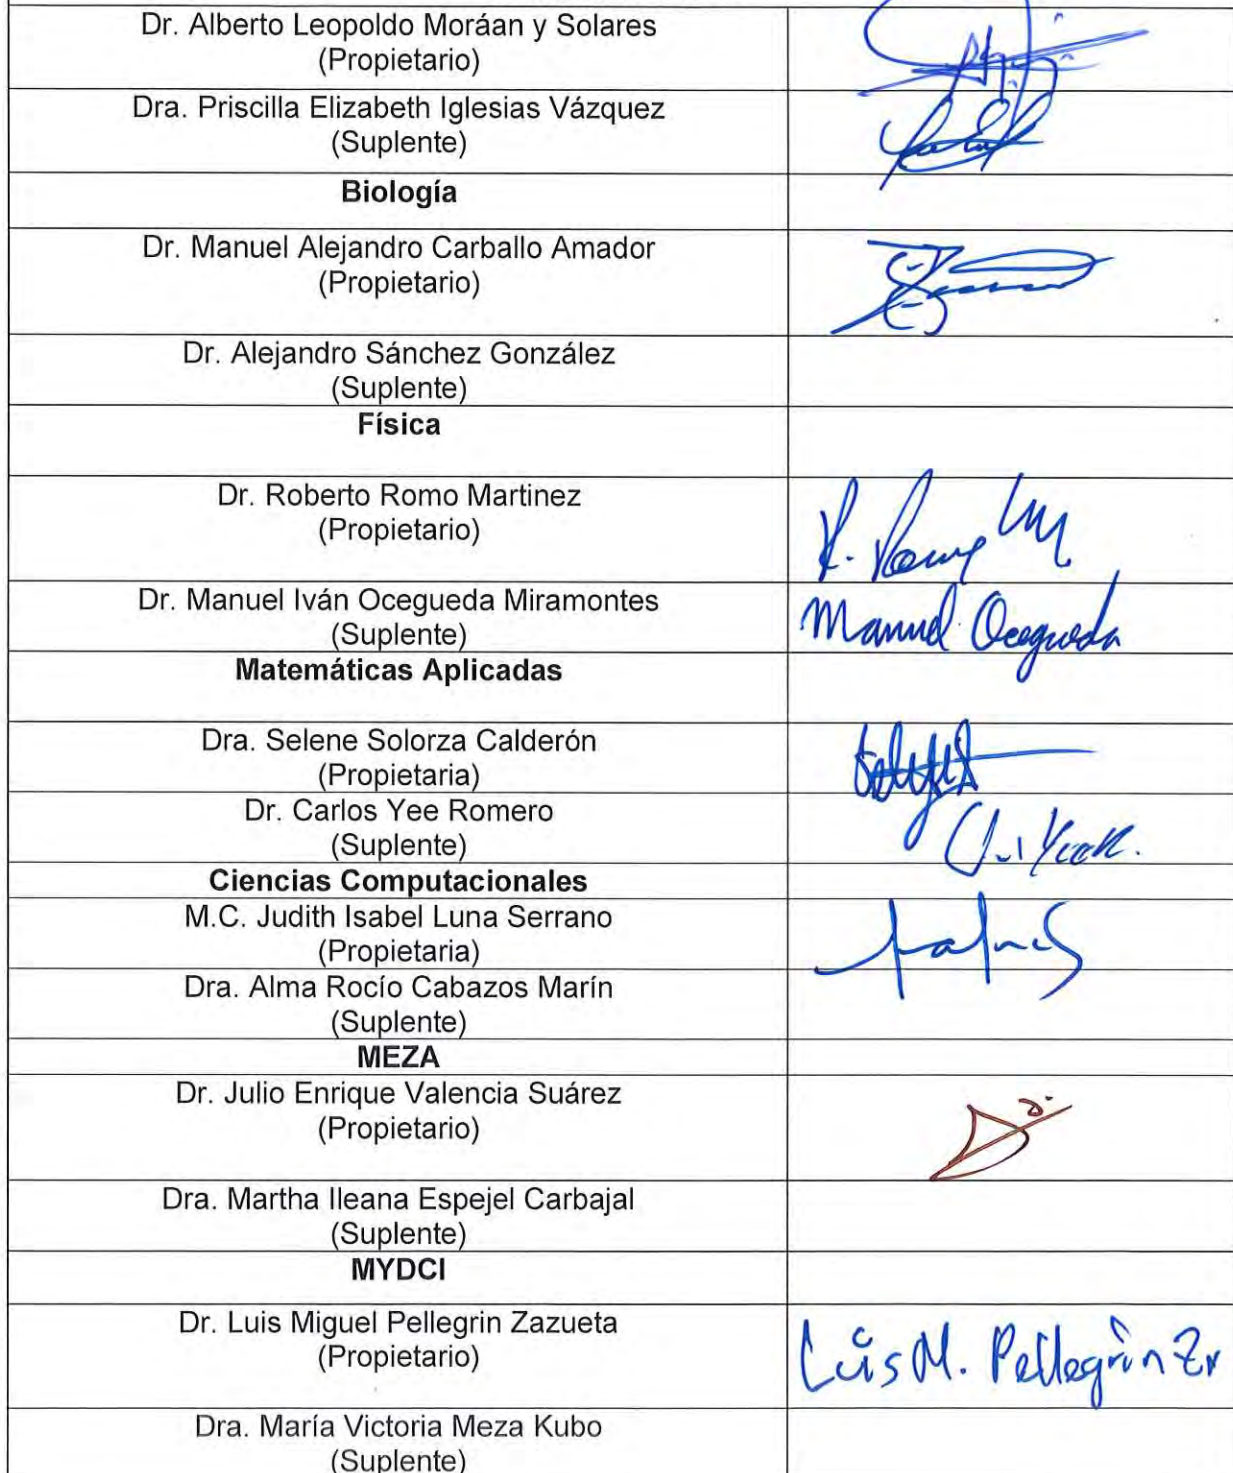 Dr. Alberto Leopoldo Moráan y Solares
(Propietario)
Dra. Priscilla Elizabeth Iglesias Vázquez
(Suplente)
Biología
Dr. Manuel Alejandro Carballo Amador
(Propietario)
Dr. Alejandro Sánchez González
(Suplente)
Física
Dr. Roberto Romo Martinez
(Propietario)
R. Romo M
Dr. Manuel Iván Ocegueda Miramontes
(Suplente)
Manuel Ocegueda
Matemáticas Aplicadas
Dra. Selene Solorza Calderón
(Propietaria)
Dr. Carlos Yee Romero
(Suplente)
Ciencias Computacionales
M.C. Judith Isabel Luna Serrano
(Propietaria)
Dra. Alma Rocío Cabazos Marín
(Suplente)
MEZA
Dr. Julio Enrique Valencia Suárez
(Propietario)
Dra. Martha Ileana Espejel Carbajal
(Suplente)
MYDCI
Dr. Luis Miguel Pellegrin Zazueta
(Propietario)
Luis M. Pellegrin Z
Dra. María Victoria Meza Kubo
(Suplente)